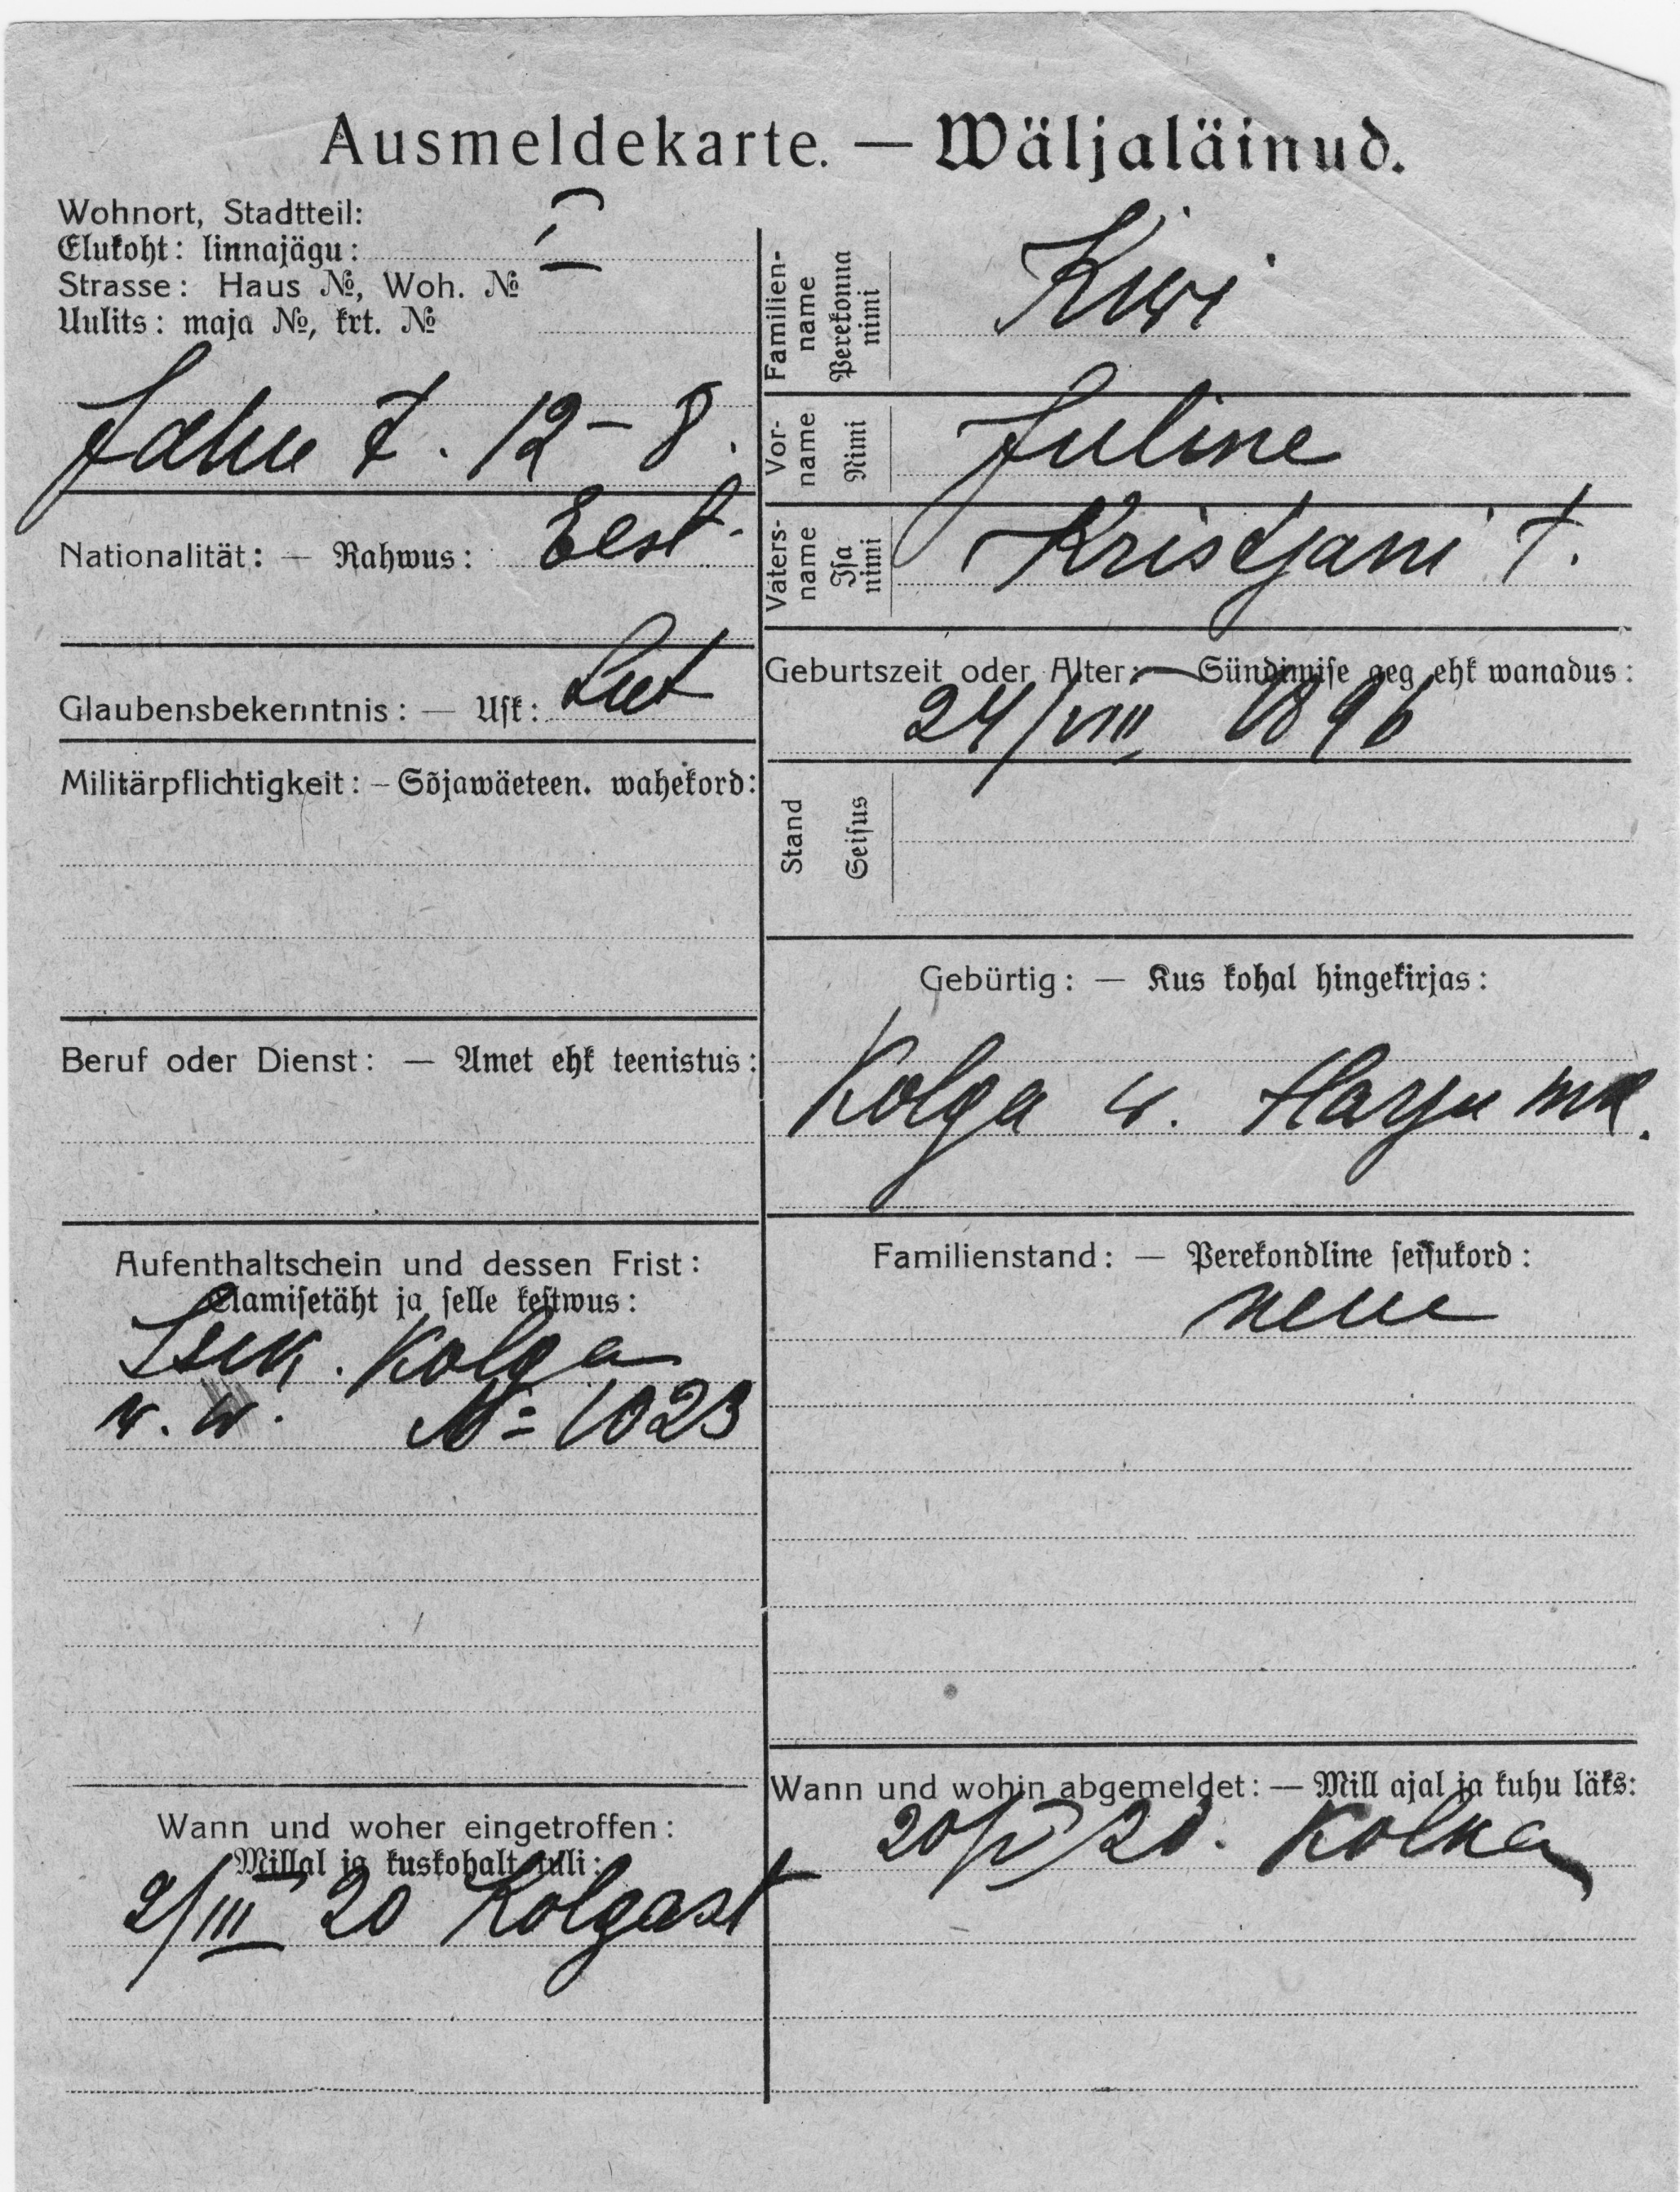 Ausmeldekarte. — Wäljaläinud.
Wohnort, Stadtteil:
Elukoht: linnajägu: I
Strasse: Haus №, Woh. №
Uulits: maja №, krt. №
Jahu t. 12-8.
Nationalität: — Rahwus: Eest.
Glaubensbekenntnis: — Usk: Lut
Militärpflichtigkeit: — Sõjawäeteen. wahekord:
Beruf oder Dienst: — Amet ehk teenistus:
Aufenthaltschein und dessen Frist:
Elamisetäht ja selle kestwus:
Isik. Kolga
w. w. № 1023
Wann und woher eingetroffen:
Millal ja kuskohalt tuli:
2/III 20 Kolgast
Familien-
name
Perekonna
nimi
Kiwi
Vor-
name
Nimi
Juline
Vaters-
name
Isa
nimi
Kristjani t.
Geburtszeit oder Alter: — Sündimise aeg ehk wanadus:
24/VIII 1896
Stand
Seisus
Gebürtig: — Kus kohal hingekirjas:
Kolga w. Harju mk.
Familienstand: — Perekondline seisukord:
neiu
Wann und wohin abgemeldet: — Mill ajal ja kuhu läks:
20/V 20. Kolka